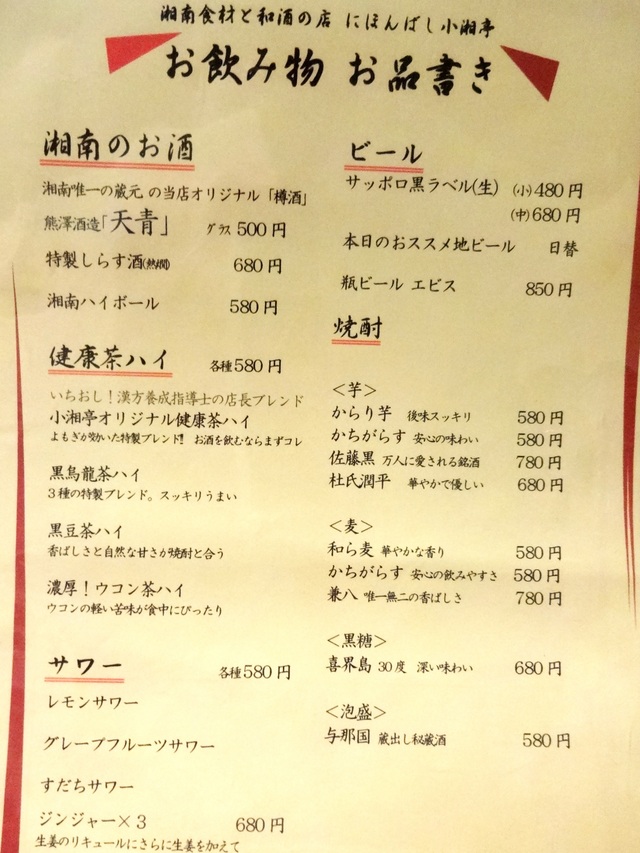 湘南食材と和酒の店 にほんばし小湘亭
お飲み物 お品書き
湘南のお酒
湘南唯一の蔵元 の当店オリジナル「樽酒」
熊澤酒造「天青」 グラス 500 円
特製しらす酒(熱燗) 680 円
湘南ハイボール 580 円
健康茶ハイ 各種580 円
いちおし！漢方養成指導士の店長ブレンド
小湘亭オリジナル健康茶ハイ
よもぎが効いた特製ブレンド！ お酒を飲むならまずコレ
黒烏龍茶ハイ
３種の特製ブレンド。スッキリうまい
黒豆茶ハイ
香ばしさと自然な甘さが焼酎と合う
濃厚！ウコン茶ハイ
ウコンの軽い苦味が食中にぴったり
サワー 各種580 円
レモンサワー
グレープフルーツサワー
すだちサワー
ジンジャー×３ 680 円
生姜のリキュールにさらに生姜を加えて
ビール
サッポロ黒ラベル(生) (小)480 円
(中)680 円
本日のおススメ地ビール 日替
瓶ビール エビス 850 円
焼酎
＜芋＞
からり芋 後味スッキリ 580 円
かちがらす 安心の味わい 580 円
佐藤黒 万人に愛される銘酒 780 円
杜氏潤平 華やかで優しい 680 円
＜麦＞
和ら麦 華やかな香り 580 円
かちがらす 安心の飲みやすさ 580 円
兼八 唯一無二の香ばしさ 780 円
＜黒糖＞
喜界島 30 度 深い味わい 680 円
＜泡盛＞
与那国 蔵出し秘蔵酒 580 円